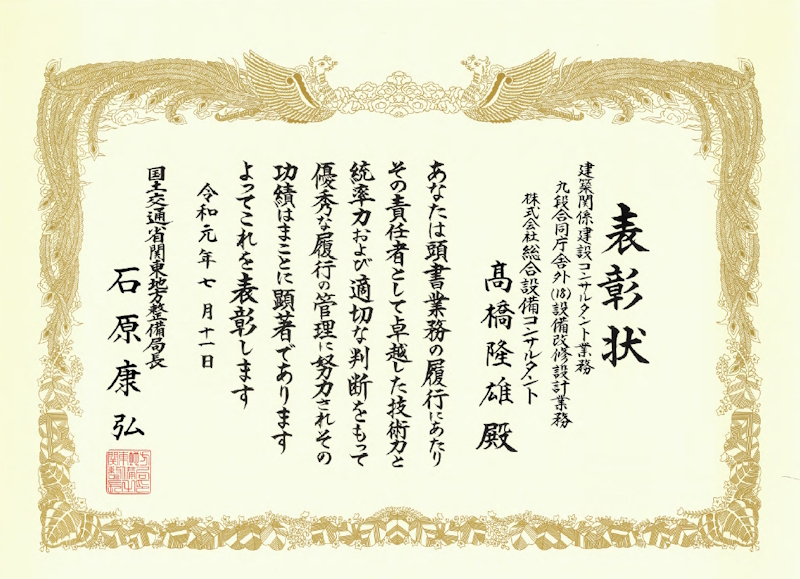 表彰状
建築関係建設コンサルタント業務
九段合同庁舎外(18)設備改修設計業務
株式会社総合設備コンサルタント
髙橋隆雄殿
あなたは頭書業務の履行にあたり
その責任者として卓越した技術力と
統率力および適切な判断をもって
優秀な履行の管理に努力されその
功績はまことに顕著であります
よってこれを表彰します
令和元年七月十一日
国土交通省関東地方整備局長
石原康弘